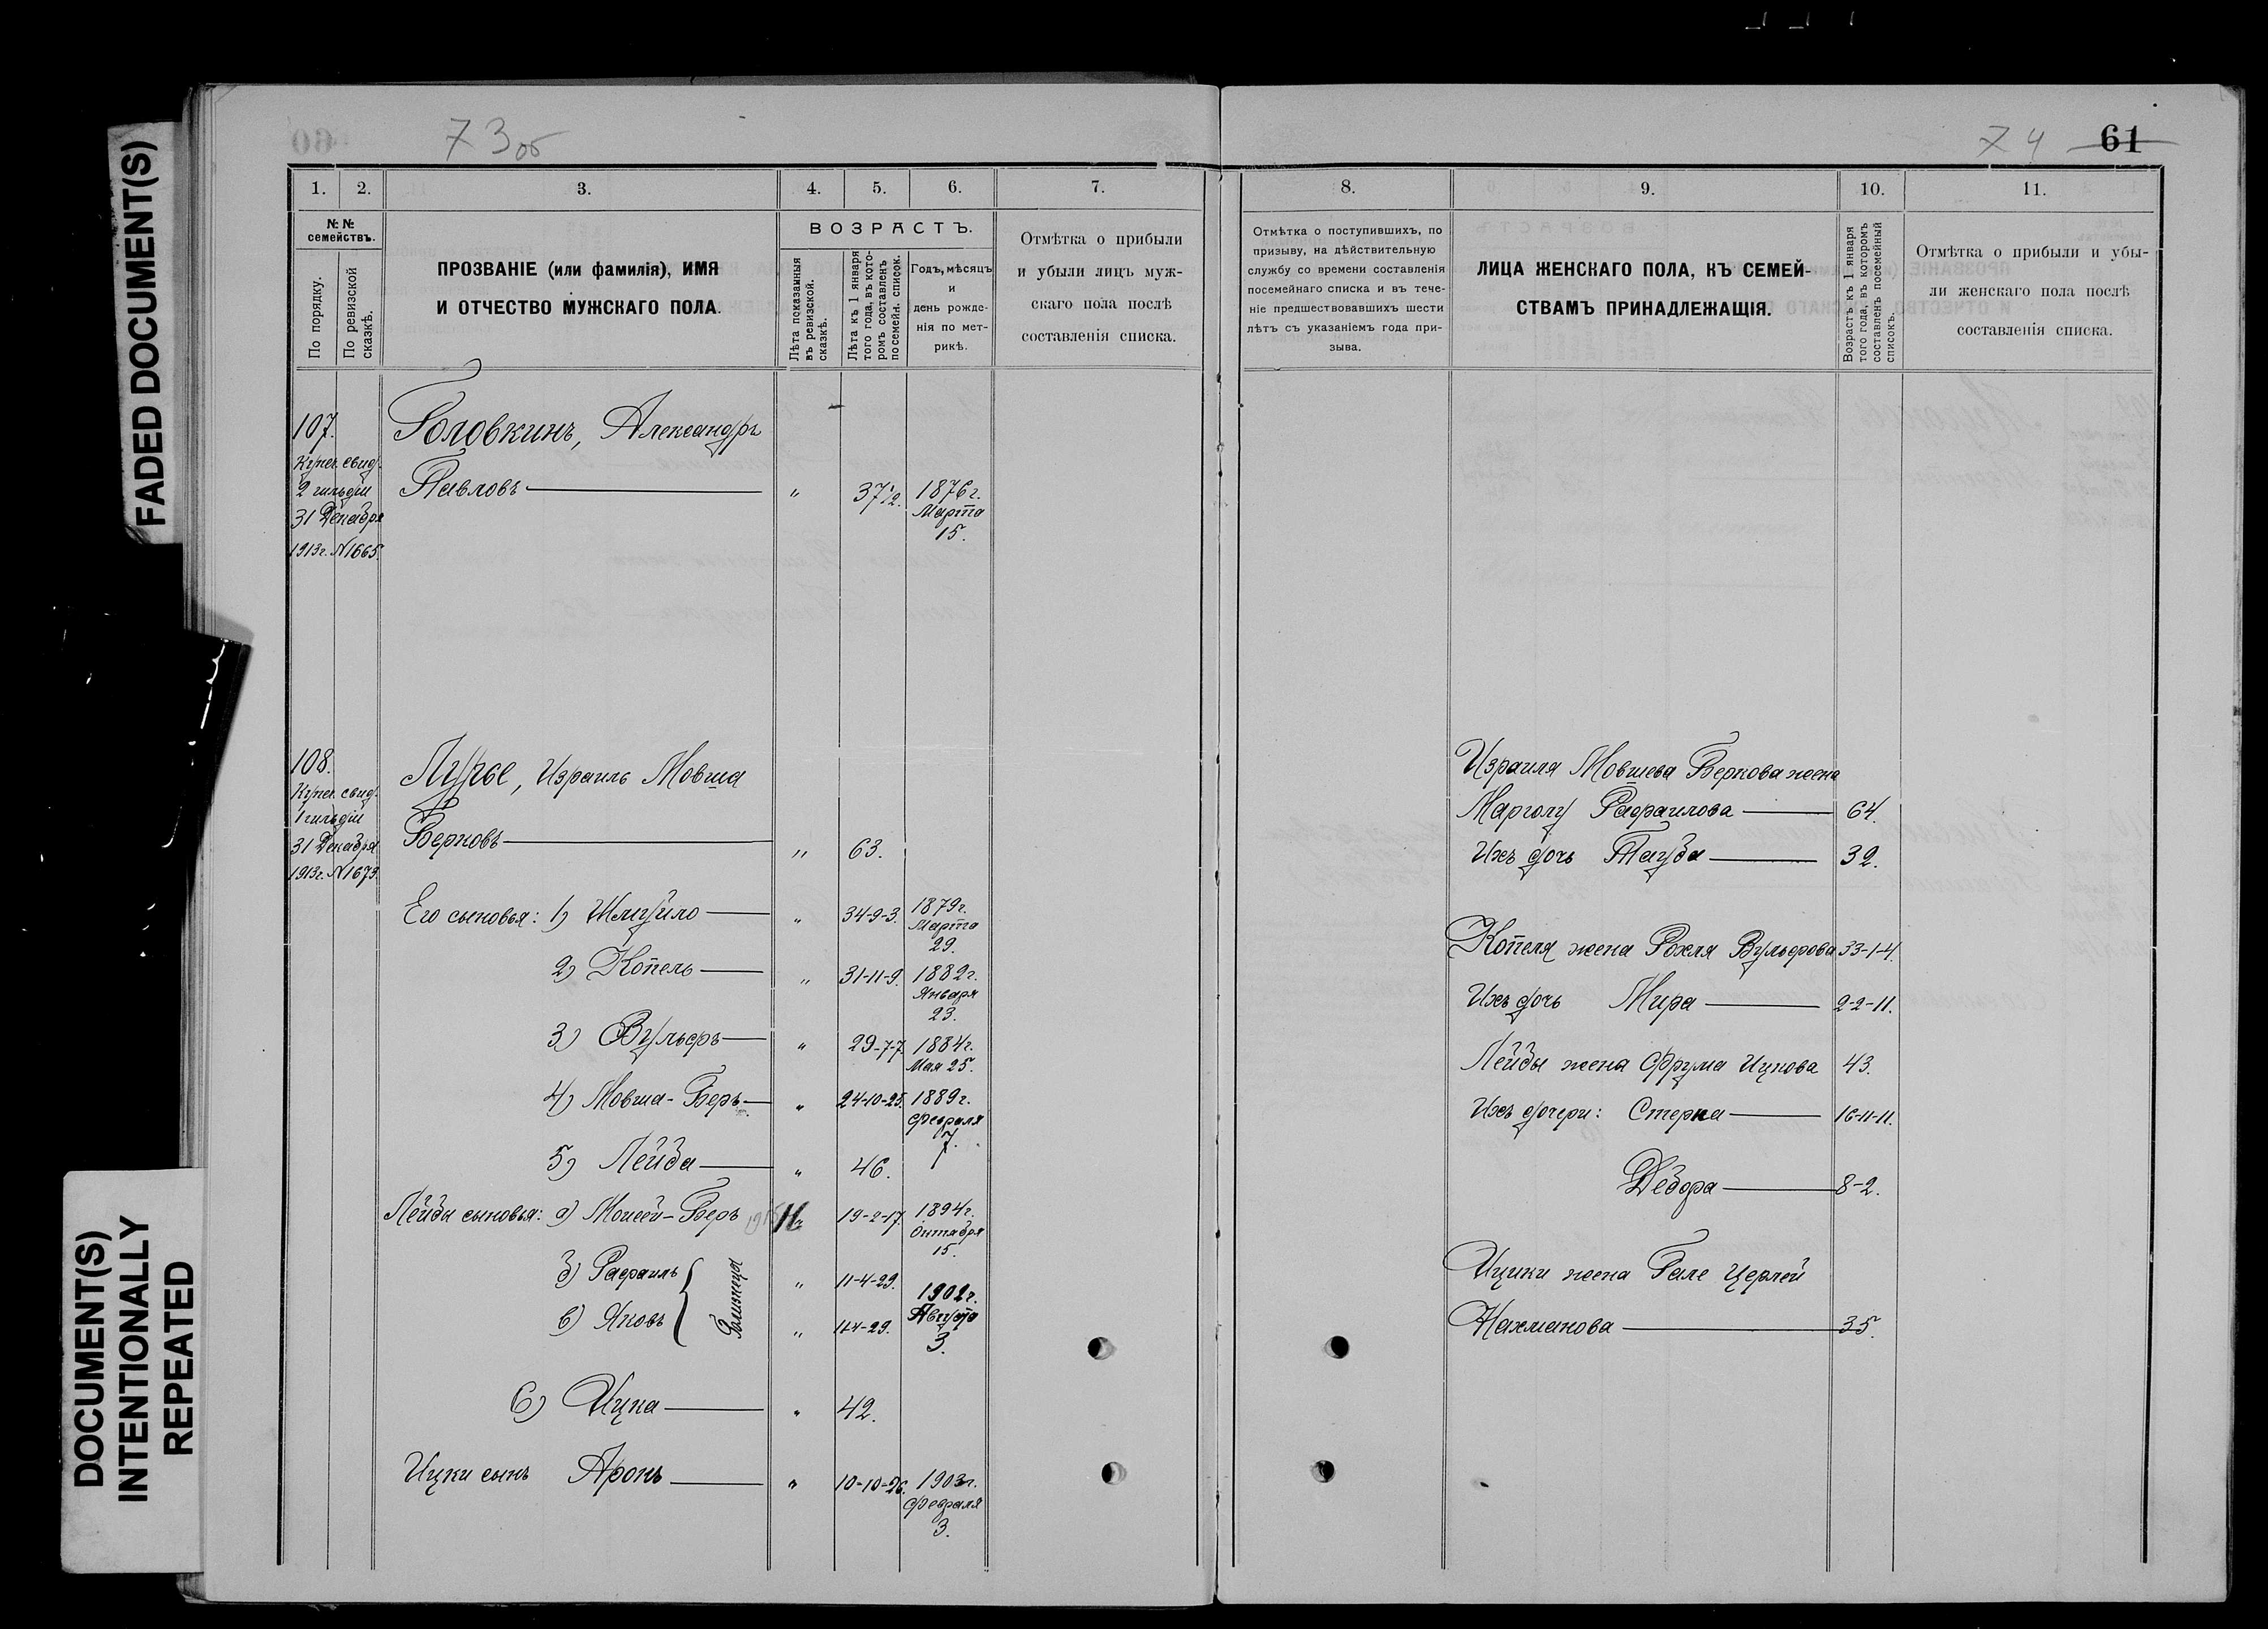 FADED DOCUMENT(S)
DOCUMENT(S)
INTENTIONALLY
REPEATED
73об
1. 2. 3. 4. 5. 6. 7.
№ №
семействъ.
По порядку.
По ревизской
сказкѣ.
ПРОЗВАНІЕ (или фамилія), ИМЯ
И ОТЧЕСТВО МУЖСКАГО ПОЛА.
ВОЗРАСТЪ.
Лѣта показанныя
въ ревизской.
сказкѣ.
Лѣта къ 1 января
того года, въ кото-
ромъ составленъ
посемейн. список.
Годъ, мѣсяцъ
и
день рожде-
нія по мет-
рикѣ.
Отмѣтка о прибыли
и убыли лицъ муж-
скаго пола послѣ
составленія списка.
107. Головкинъ, Александръ
Купеч. свид.
2 гильдіи Павловъ " 37½. 1876г.
31 Декабря Марта
1913г. N1665. 15.
108. Лурье, Израиль Мовша
Купеч. свид.
1 гильдіи
31 Декабря Берковъ " 63.
1913г. N1673.
Его сыновья: 1) Шмуйло " 34-9-3. 1879г.
Марта
29.
2) Копель " 31-11-9. 1882г.
Января
23.
3) Вульфъ " 29-7-7. 1884г.
Мая 25.
4) Мовша-Беръ " 24-10-25. 1889г.
Февраля
7.
5) Лейба " 46.
Лейбы сыновья: а) Моисей-Беръ " 19-2-17. 1894г.
Октября
15.
б) Рафаилъ " 11-4-29. 1902г.
Близнецы
в) Яковъ " 11-4-29. Августа
3.
6) Ицка " 42.
Ицки сынъ Аронъ " 10-10-26. 1903г.
Февраля
3.
74 61
8. 9. 10. 11.
Отмѣтка о поступившихъ, по
призыву, на дѣйствительную
службу со времени составленія
посемейнаго списка и въ тече-
ніе предшествовавшихъ шести
лѣтъ съ указаніемъ года при-
зыва.
ЛИЦА ЖЕНСКАГО ПОЛА, КЪ СЕМЕЙ-
СТВАМЪ ПРИНАДЛЕЖАЩІЯ.
Возрастъ къ 1 января
того года, въ которомъ
составленъ посемейный
списокъ.
Отмѣтка о прибыли и убы-
ли женскаго пола послѣ
составленія списка.
Израиля Мовшева Беркова жена
Марголу Рафаилова 64.
Ихъ дочь Тауба 32.
Копеля жена Рохля Вульфова 33-1-4.
Ихъ дочь Мира 2-2-11.
Лейбы жена Фрума Ицкова 43.
Ихъ дочери: Стерка 16-11-11.
Дебора 8-2.
Ицки жена Гале Церлей
Нахманова 35.